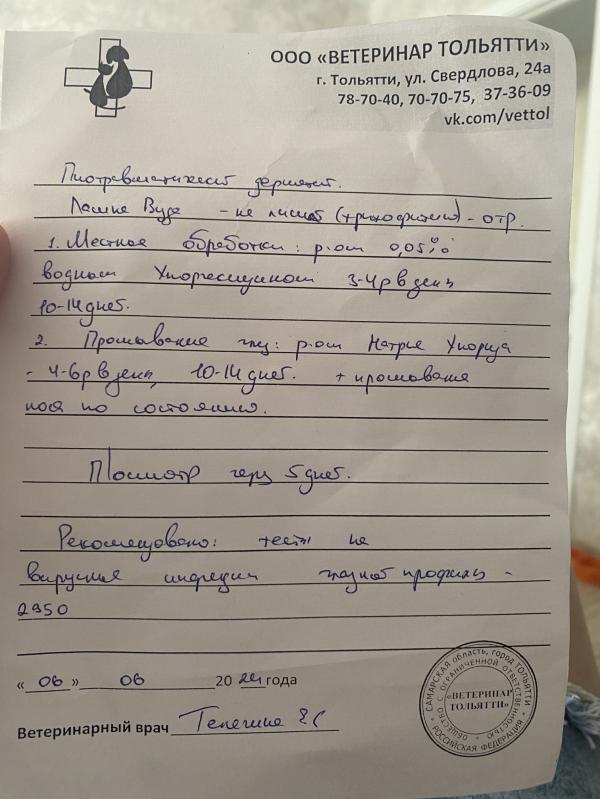 ООО «ВЕТЕРИНАР ТОЛЬЯТТИ»
г. Тольятти, ул. Свердлова, 24а
78-70-40, 70-70-75, 37-36-09
vk.com/vettol
Пиотравматический дерматит.
Лампа Вуда - на лишай (трихофития) - отр.
1. Местное обработки: р-ом 0,05%
водным Хлоргексидином 3-4р в день
10-14 дней.
2. Промывание глаз: р-ом Натрия Хлорида
- 4-6р в день, 10-14 дней. + промывание
носа по состоянию.
Посмотр через 5 дней.
Рекомендовано: тест на
вирусные инфекции глазной профиль -
2950
« 06 » 06 20 24 года
Ветеринарный врач
САМАРСКАЯ область, город ТОЛЬЯТТИ
ОБЩЕСТВО С ОГРАНИЧЕННОЙ ОТВЕТСТВЕННОСТЬЮ
«ВЕТЕРИНАР
ТОЛЬЯТТИ»
РОССИЙСКАЯ ФЕДЕРАЦИЯ